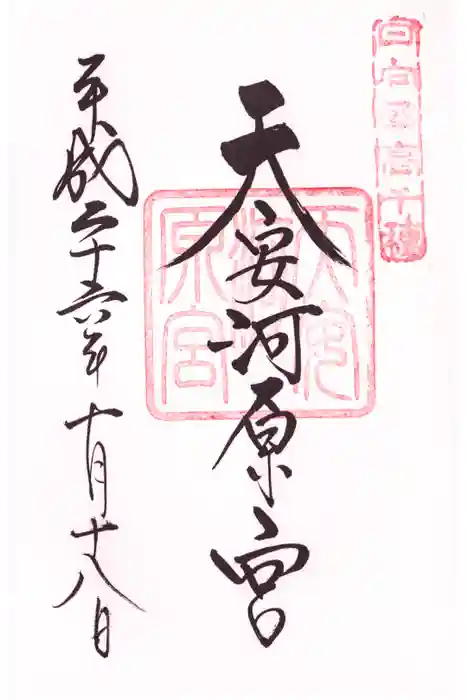 日向 高千穂
天安河原宮
天安
河
原宮
平成二十六年十月十八日